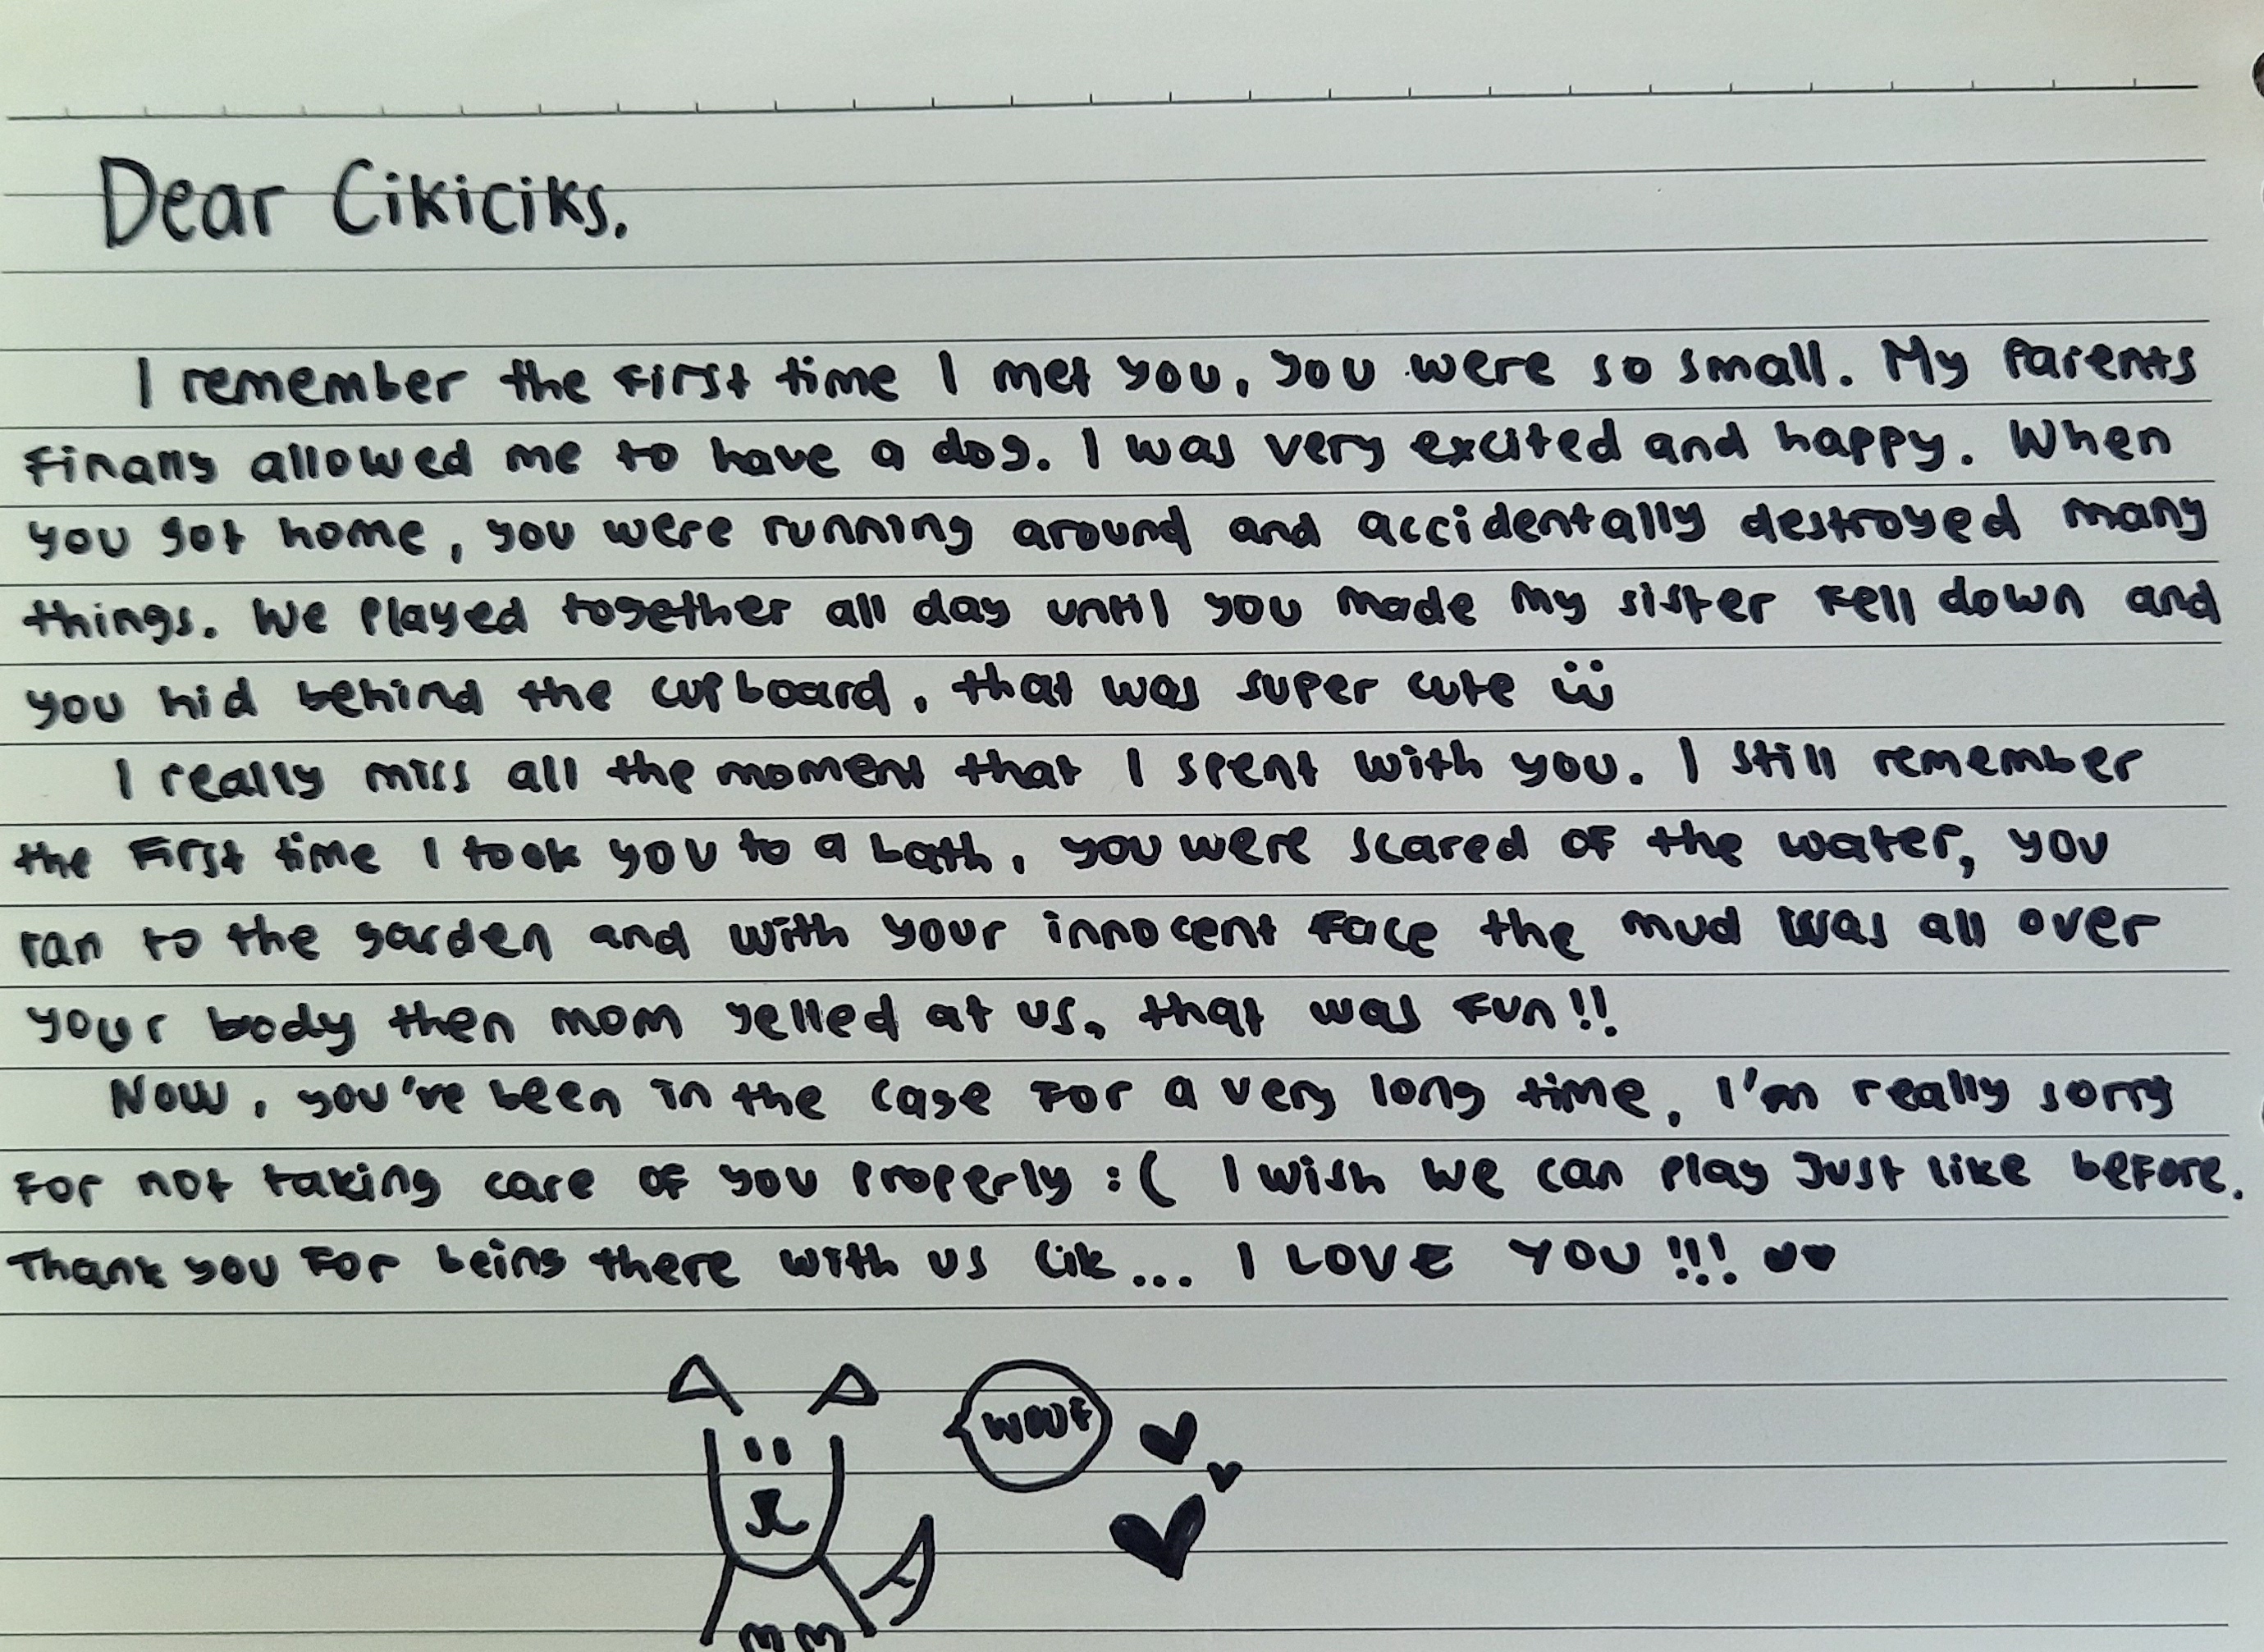 Dear Cikiciks.
I remember the first time I met you, you were so small. My Parents
finally allowed me to have a dog. I was very excited and happy. When
you got home, you were running around and accidentally destroyed many
things. We Played together all day until you made my sister fell down and
you hid behind the cupboard, that was super cute ü
I really miss all the moment that I spent with you. I still remember
the first time I took you to a bath, you were scared of the water, you
ran to the garden and with your innocent face the mud was all over
your body then mom yelled at us, that was fun!!
Now, you've been in the cage for a very long time, I'm really sorry
for not taking care of you properly :( I wish we can play just like before.
Thank you for being there with us Cik... I LOVE YOU!!! ♥♥
WOUF